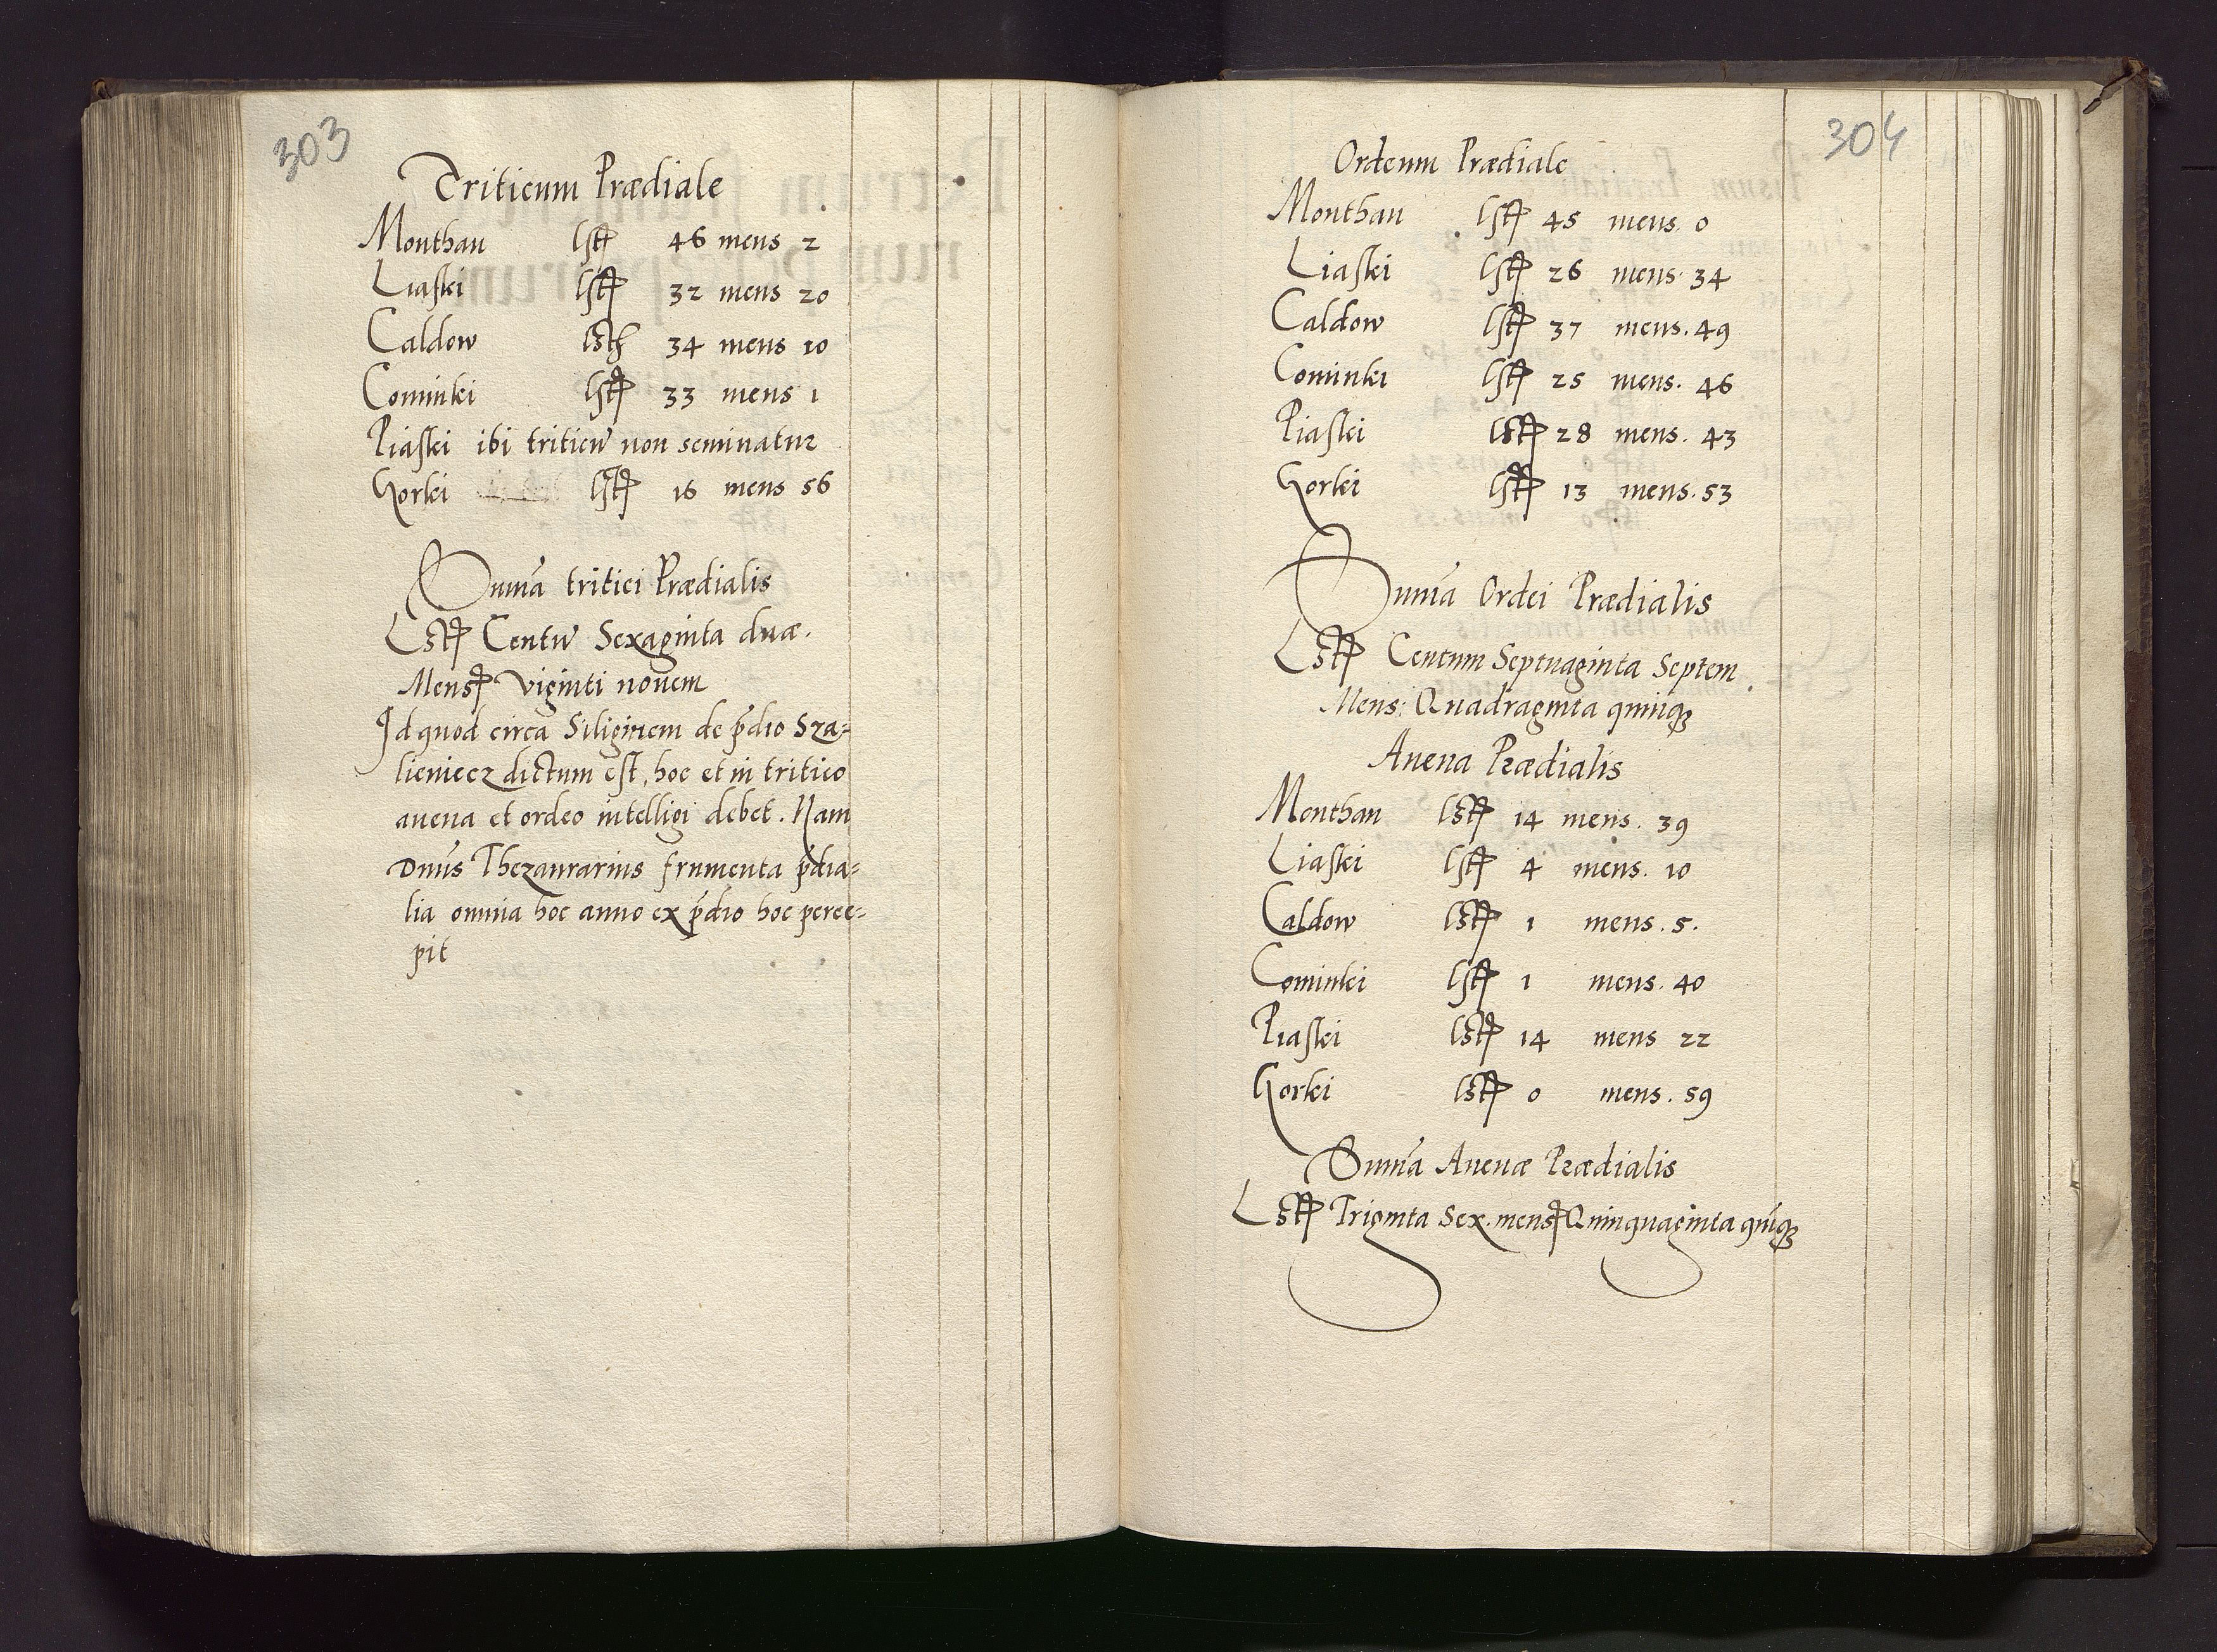 303
Triticum Prædiale
Monthau lst 46 mens 2
Liaski lst 32 mens 20
Caldow lst 34 mens 10
Cominki lst 33 mens 1
Piaski ibi triticũ non seminatur
Gorki lst 16 mens 56
Suma̅ tritici Prædialis
Lst Centũ Sexaginta duæ.
Mens Viginti nouem
Id quod circa Siliginem de p̃dio Sza=
lieniecz dictum est, hoc et in tritico
auena et ordeo intelligi debet. Nam
Dnũs Thezaurarius frumenta p̃dia=
lia omnia hoc anno ex p̃dio hoc perce=
pit
304
Ordeum Prædiale
Monthau lst 45 mens. 0
Liaski lst 26 mens. 34
Caldow lst 37 mens. 49
Cominki lst 25 mens. 46
Piaski lst 28 mens. 43
Gorki lst 13 mens. 53
Suma̅ Ordei Prædialis
Lst Centum Septuaginta Septem
Mens: Quadraginta quinq
Auena Prædialis
Monthau lst 14 mens. 39
Liaski lst 4 mens. 10
Caldow lst 1 mens. 5.
Cominki lst 1 mens. 40
Piaski lst 14 mens 22
Gorki lst 0 mens. 59
Suma̅ Auenæ Prædialis
Lst Triginta Sex. mens Quinquaginta quiq